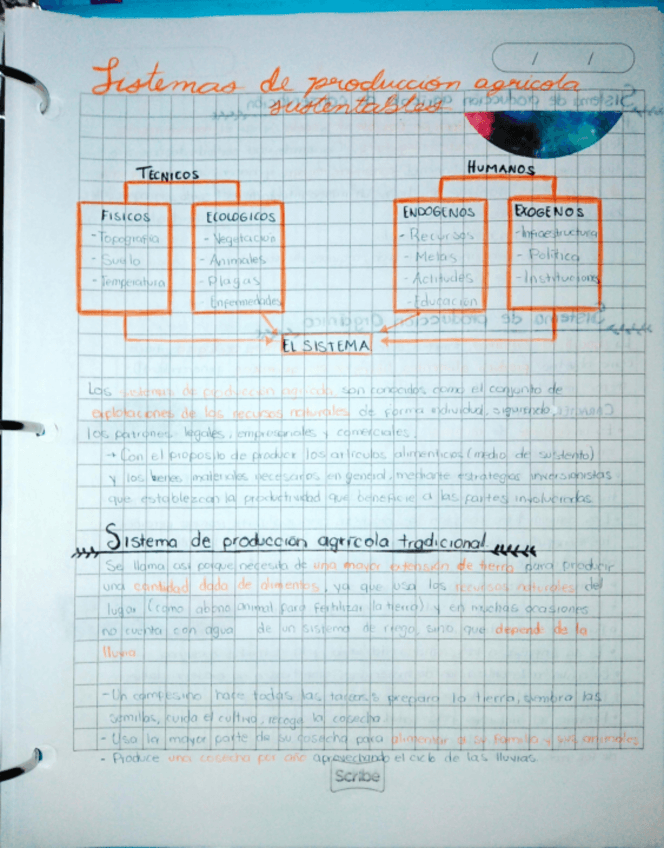 Sistemas de producción agrícola
sustentables
TÉCNICOS
HUMANOS
FISICOS
- Topografia
- Suelo
- Temperatura
ECOLOGICOS
- Vegetacion
- Animales
- Plagas
- Enfermedades
ENDOGENOS
- Recursos
- Metas
- Actitudes
- Educación
EXOGENOS
- Infraestructura
- Politica
- Instituciones
EL SISTEMA
Los sistemas de producción agricola son conocidos como el conjunto de
explotaciones de los recursos naturales de forma individual, siguiendo
los patrones legales, empresariales y comerciales.
→ Con el proposito de producir los artículos alimenticios (medio de sustento)
y los bienes materiales necesarios en general, mediante estrategias inversionistas
que establezcan la productividad que beneficie a las partes involucradas
Sistema de producción agrícola tradicional
Se llama asi porque necesita de una mayor extensión de tierra para producir
una cantidad dada de alimentos, ya que usa los recursos naturales del
lugar (como abono animal para fertilizar la tierra) y en muchas ocasiones
no cuenta con agua de un sistema de riego, sino que depende de la
lluvia
- Un campesino hace todas las tareas prepara la tierra, siembra las
semillas, cuida el cultivo, recoge la cosecha
- Usa la mayor parte de su cosecha para alimentar a su familia y sus animales
- Produce una cosecha por año aprovechando el ciclo de las lluvias
Scribe